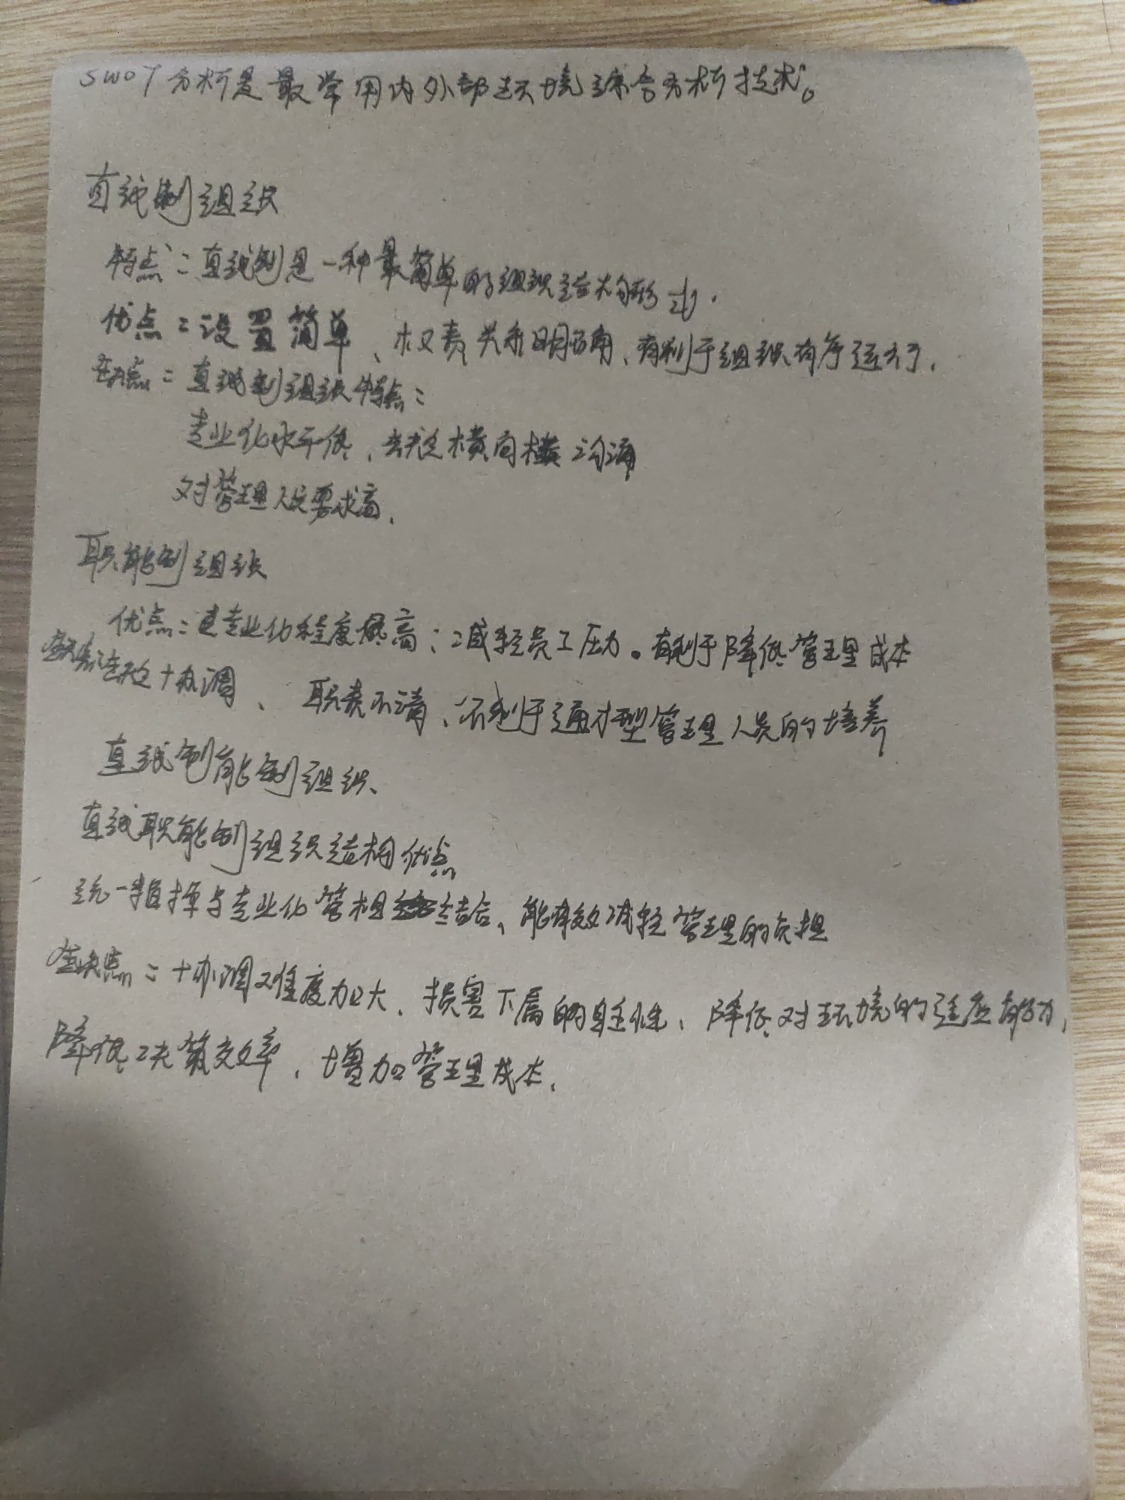 SWOT分析是最常用内外部环境综合分析技术。
直线制组织
特点：直线制是一种最简单的组织结构形式.
优点：设置简单、权责关系明确、有利于组织有序运行.
缺点：直线制组织特点：
专业化水平低、缺乏横向 沟通
对管理人员要求高.
职能制组织
优点：专业化程度高；减轻员工压力。有利于降低管理成本
缺点：缺乏协调、职责不清、不利于通才型管理人员的培养
直线制能制组织、
直线职能制组织结构优点
统一指挥与专业化管相结合、能有效减轻管理的负担
缺点：协调难度加大、损害下属的自主性、降低对环境的适应能力,
降低决策效率、增加管理成本.